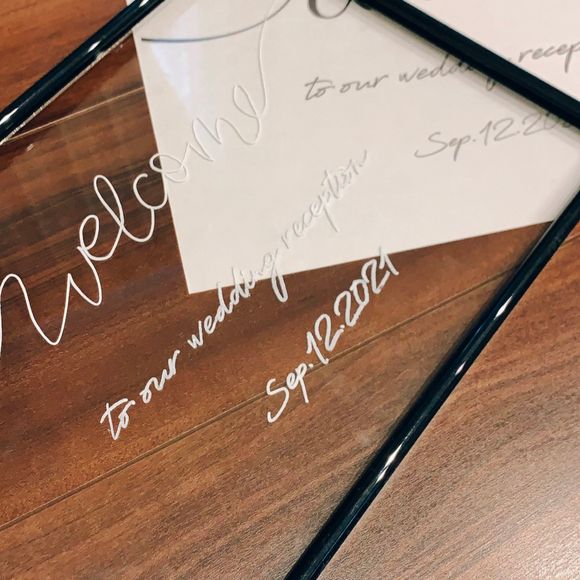 to our wedding reception
Sep.12.202
welcome
to our wedding reception
Sep.12.2021